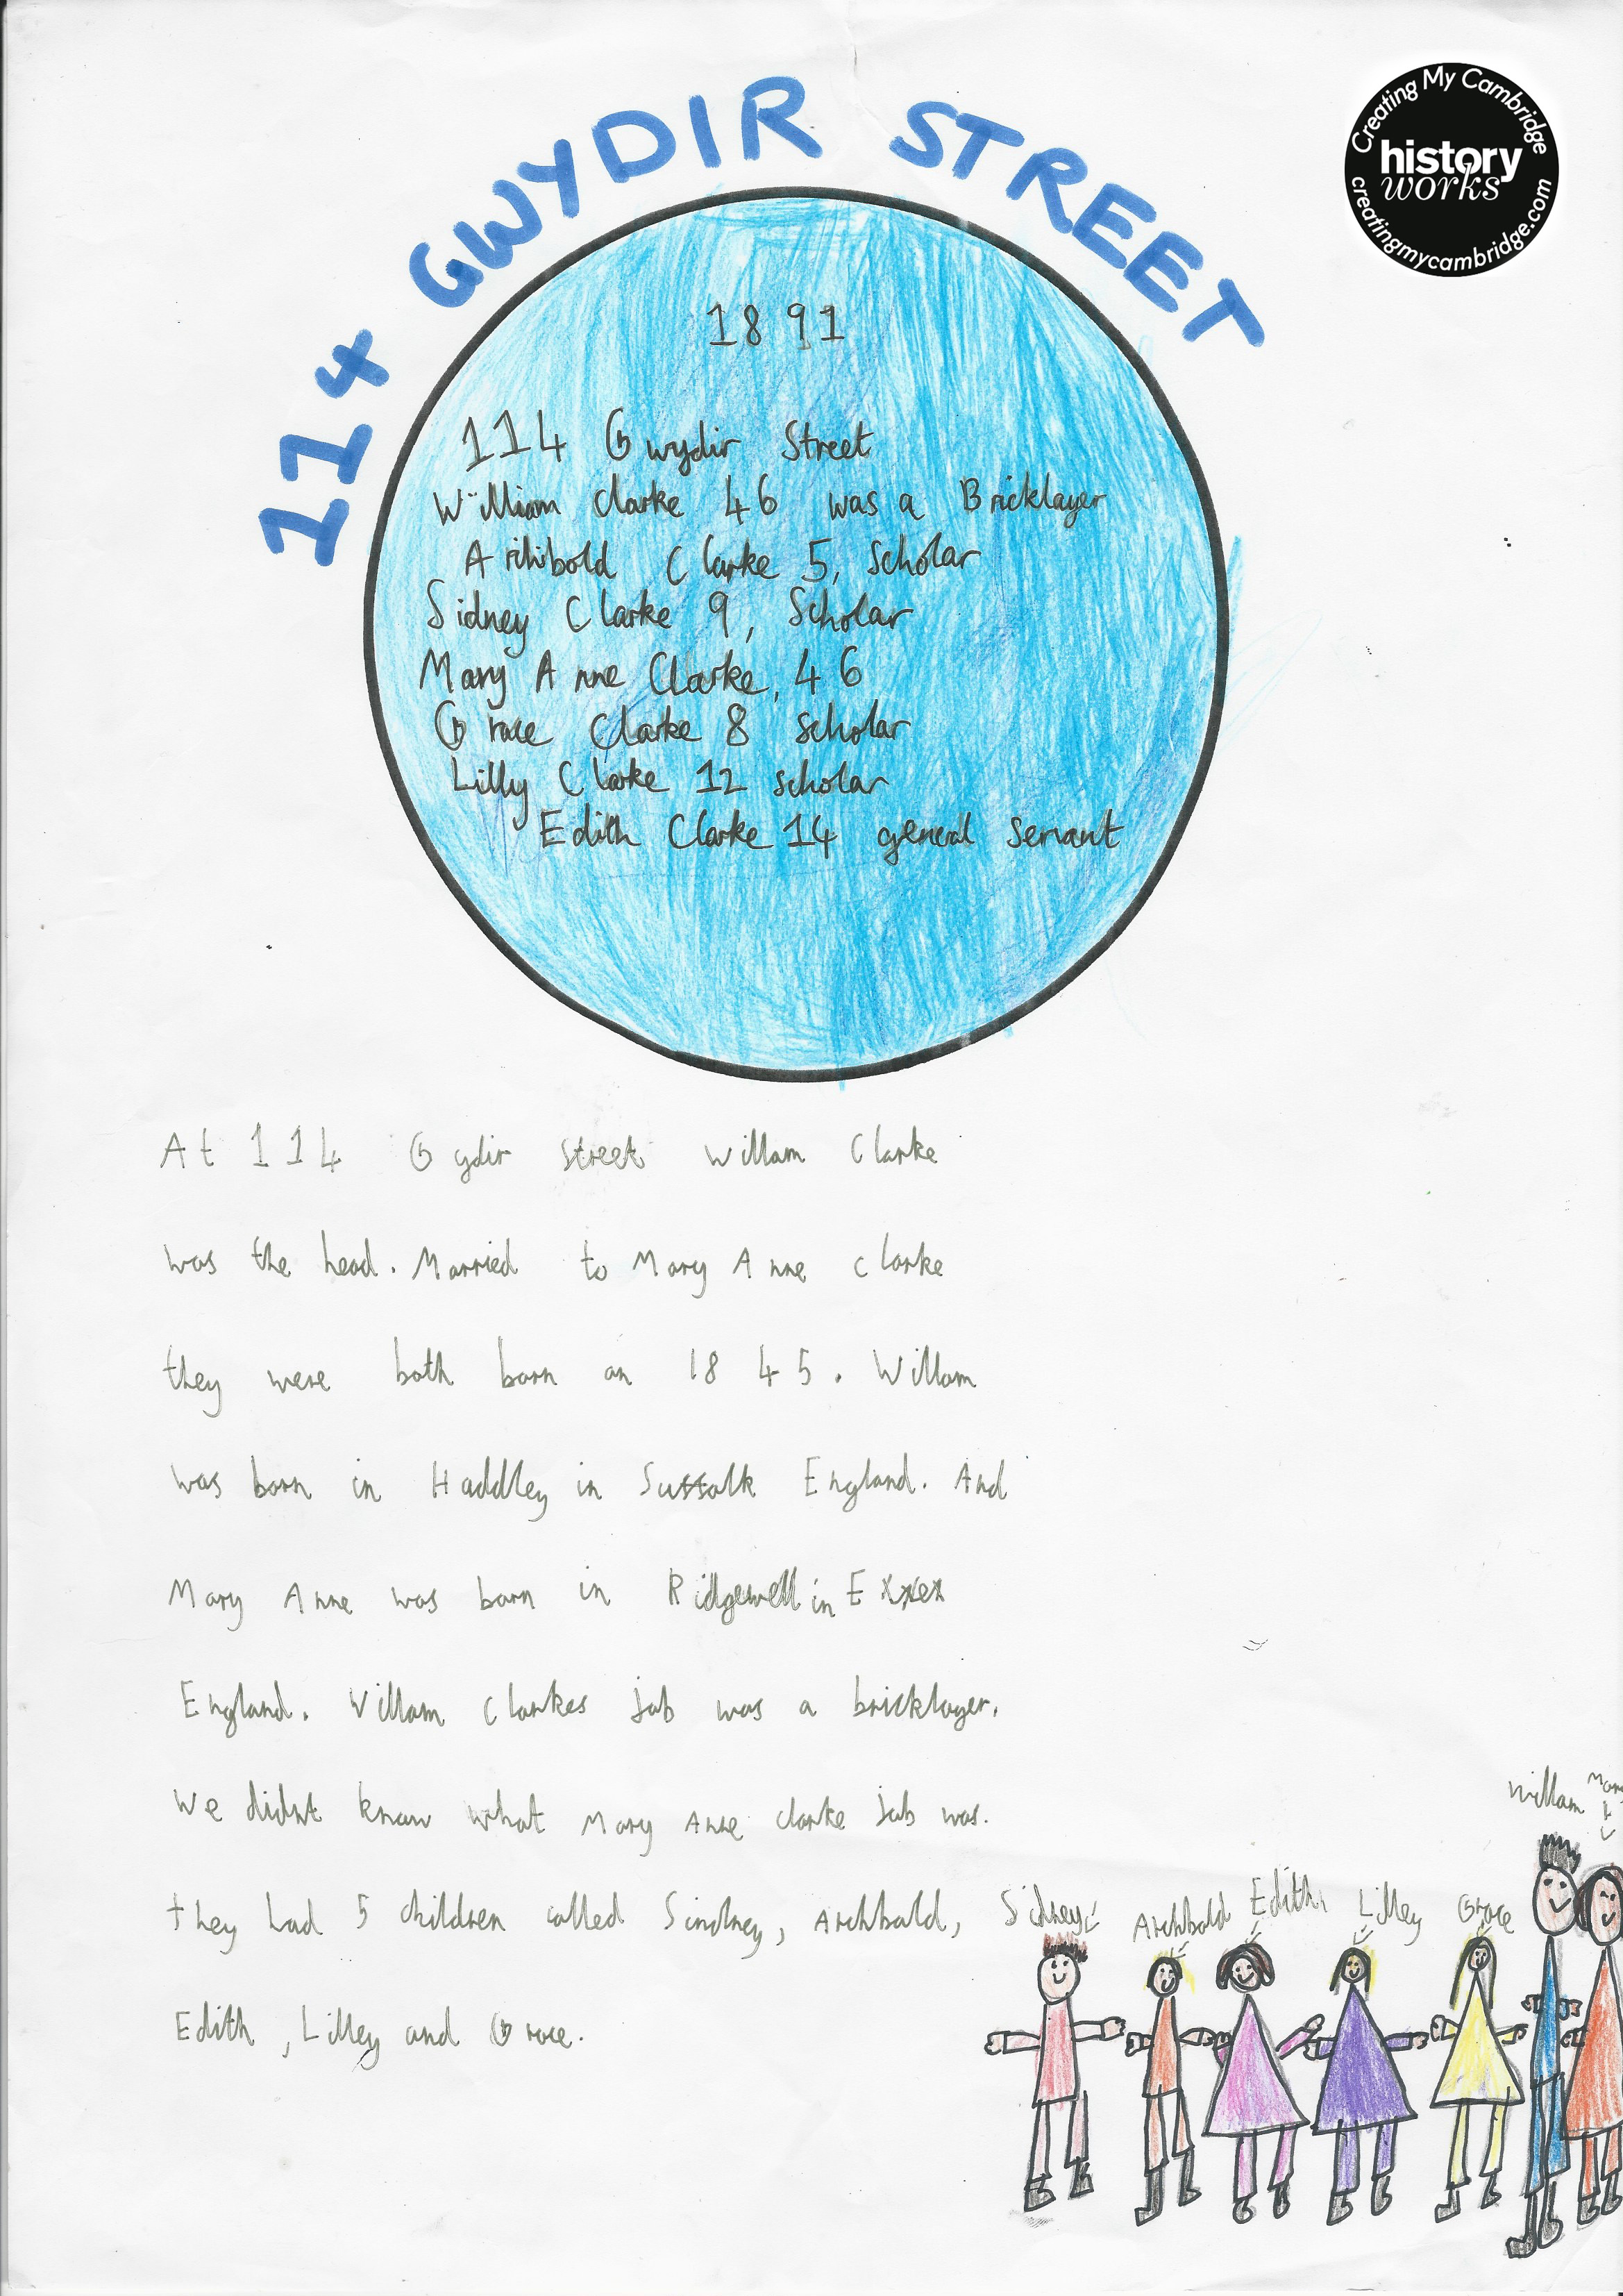 114 GWYDIR STREET
Creating My Cambridge
history
works
creatingmycambridge.com
1891
114 Gwydir Street
William Clarke 46 was a Bricklayer
Archibold Clarke 5, Scholar
Sidney Clarke 9, Scholar
Mary Anne Clarke, 46
Grace Clarke 8 scholar
Lilly Clarke 12 scholar
Edith Clarke 14 general servant
At 114 Gydir street Willam Clarke
was the head. Married to Mary Anne Clarke
they were both born on 1845. Willam
was born in Haddley in Suffolk England. And
Mary Anne was born in Ridgewell in Exxex
England. Willam Clarkes job was a bricklayer.
We didnt know what Mary Anne Clarke job was.
they had 5 children called Sindney, Archbald,
Edith, Lilley and Grace.
Sidney Archbald Edith Lilley Grace Willam